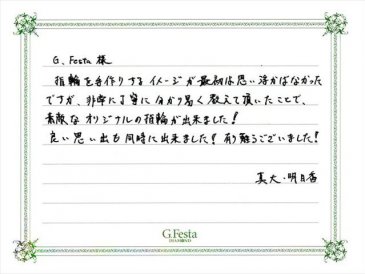 G. Festa 様
指輪を手作りするイメージが最初は思い浮かばなかった
ですが、非常に丁寧に分かり易く教えて頂いたことで、
素敵なオリジナルの指輪が出来ました!
良い思い出も同時に出来ました!有り難うございました!
真大・明日香
G.Festa
DIAMOND